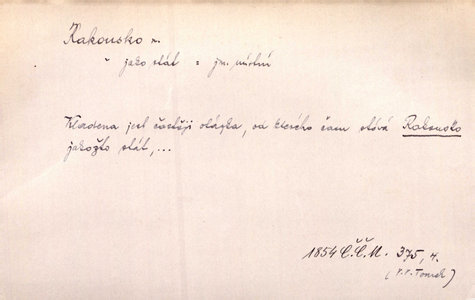 Rakousko n.
" jako stát = jm. místní
Kladena jest častěji otázka, od kterého času slóvá Rakousko
jakožto stát,...
1854 Č.Č.M. 375, 4.
(V.V. Tomek)